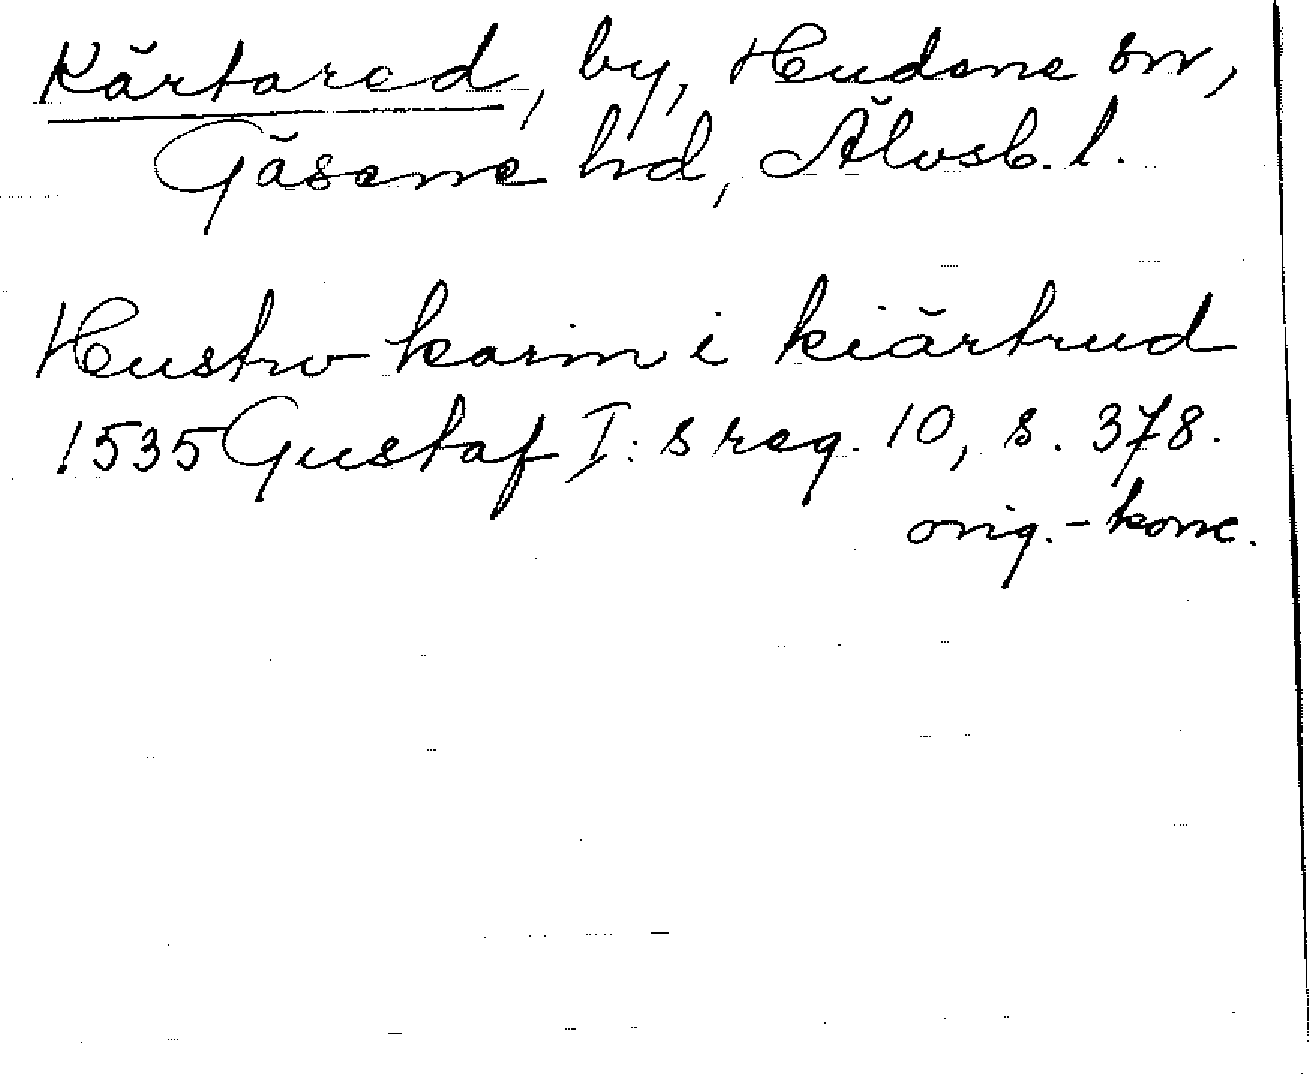 Kärtared, by, Hudene sn,
Gäsene hd, Älvsb. l.
Hustrv karin i kiärtrud
1535 Gustaf I:s reg. 10, s. 378.
orig.-konc.